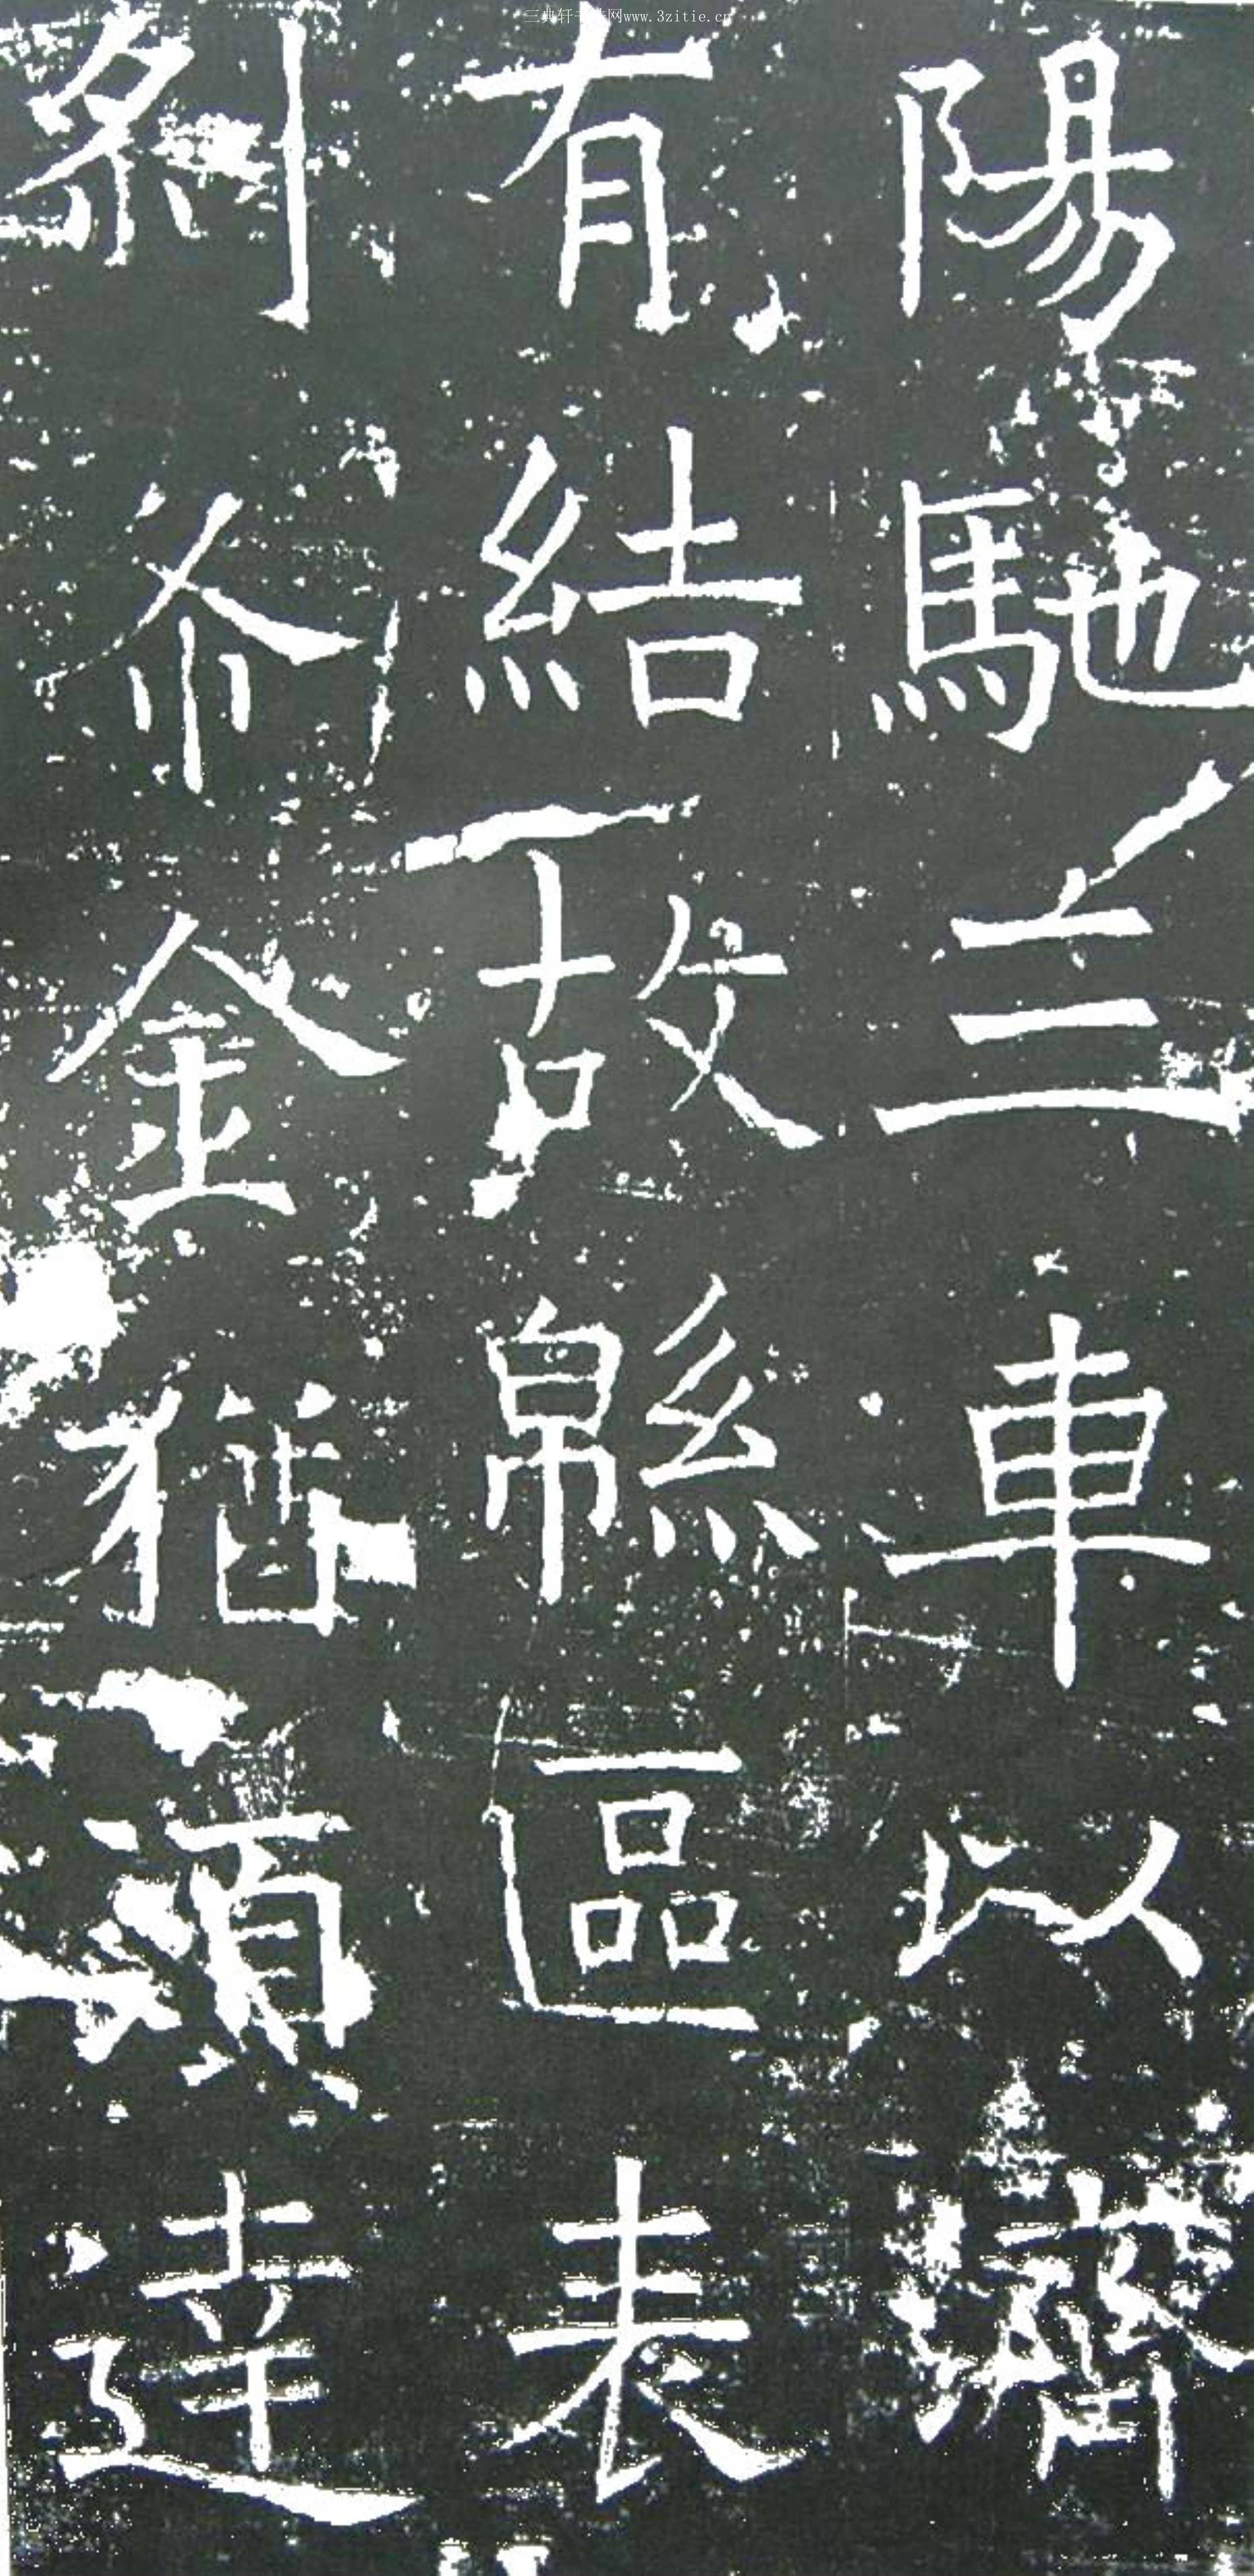 三典轩书法网www.3zitie.cn
陽馳三車以濟
有結故緜區表
刹爾金猶須達